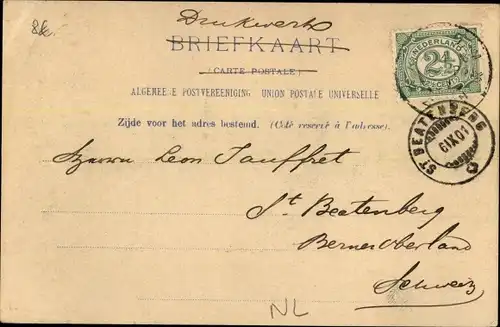 Drukwerk
BRIEFKAART
(CARTE POSTALE)
ALGEMEENE POSTVEREENIGING UNION POSTALE UNIVERSELLE
Zijde voor het adres bestemd. (Côté réservé à l'adresse).
NEDERLAND
2½
CENT
ST BEATENBERG
6IX01
Herrn Leon Tauffret
St Beatenberg
Berner Oberland
Schweiz
NL